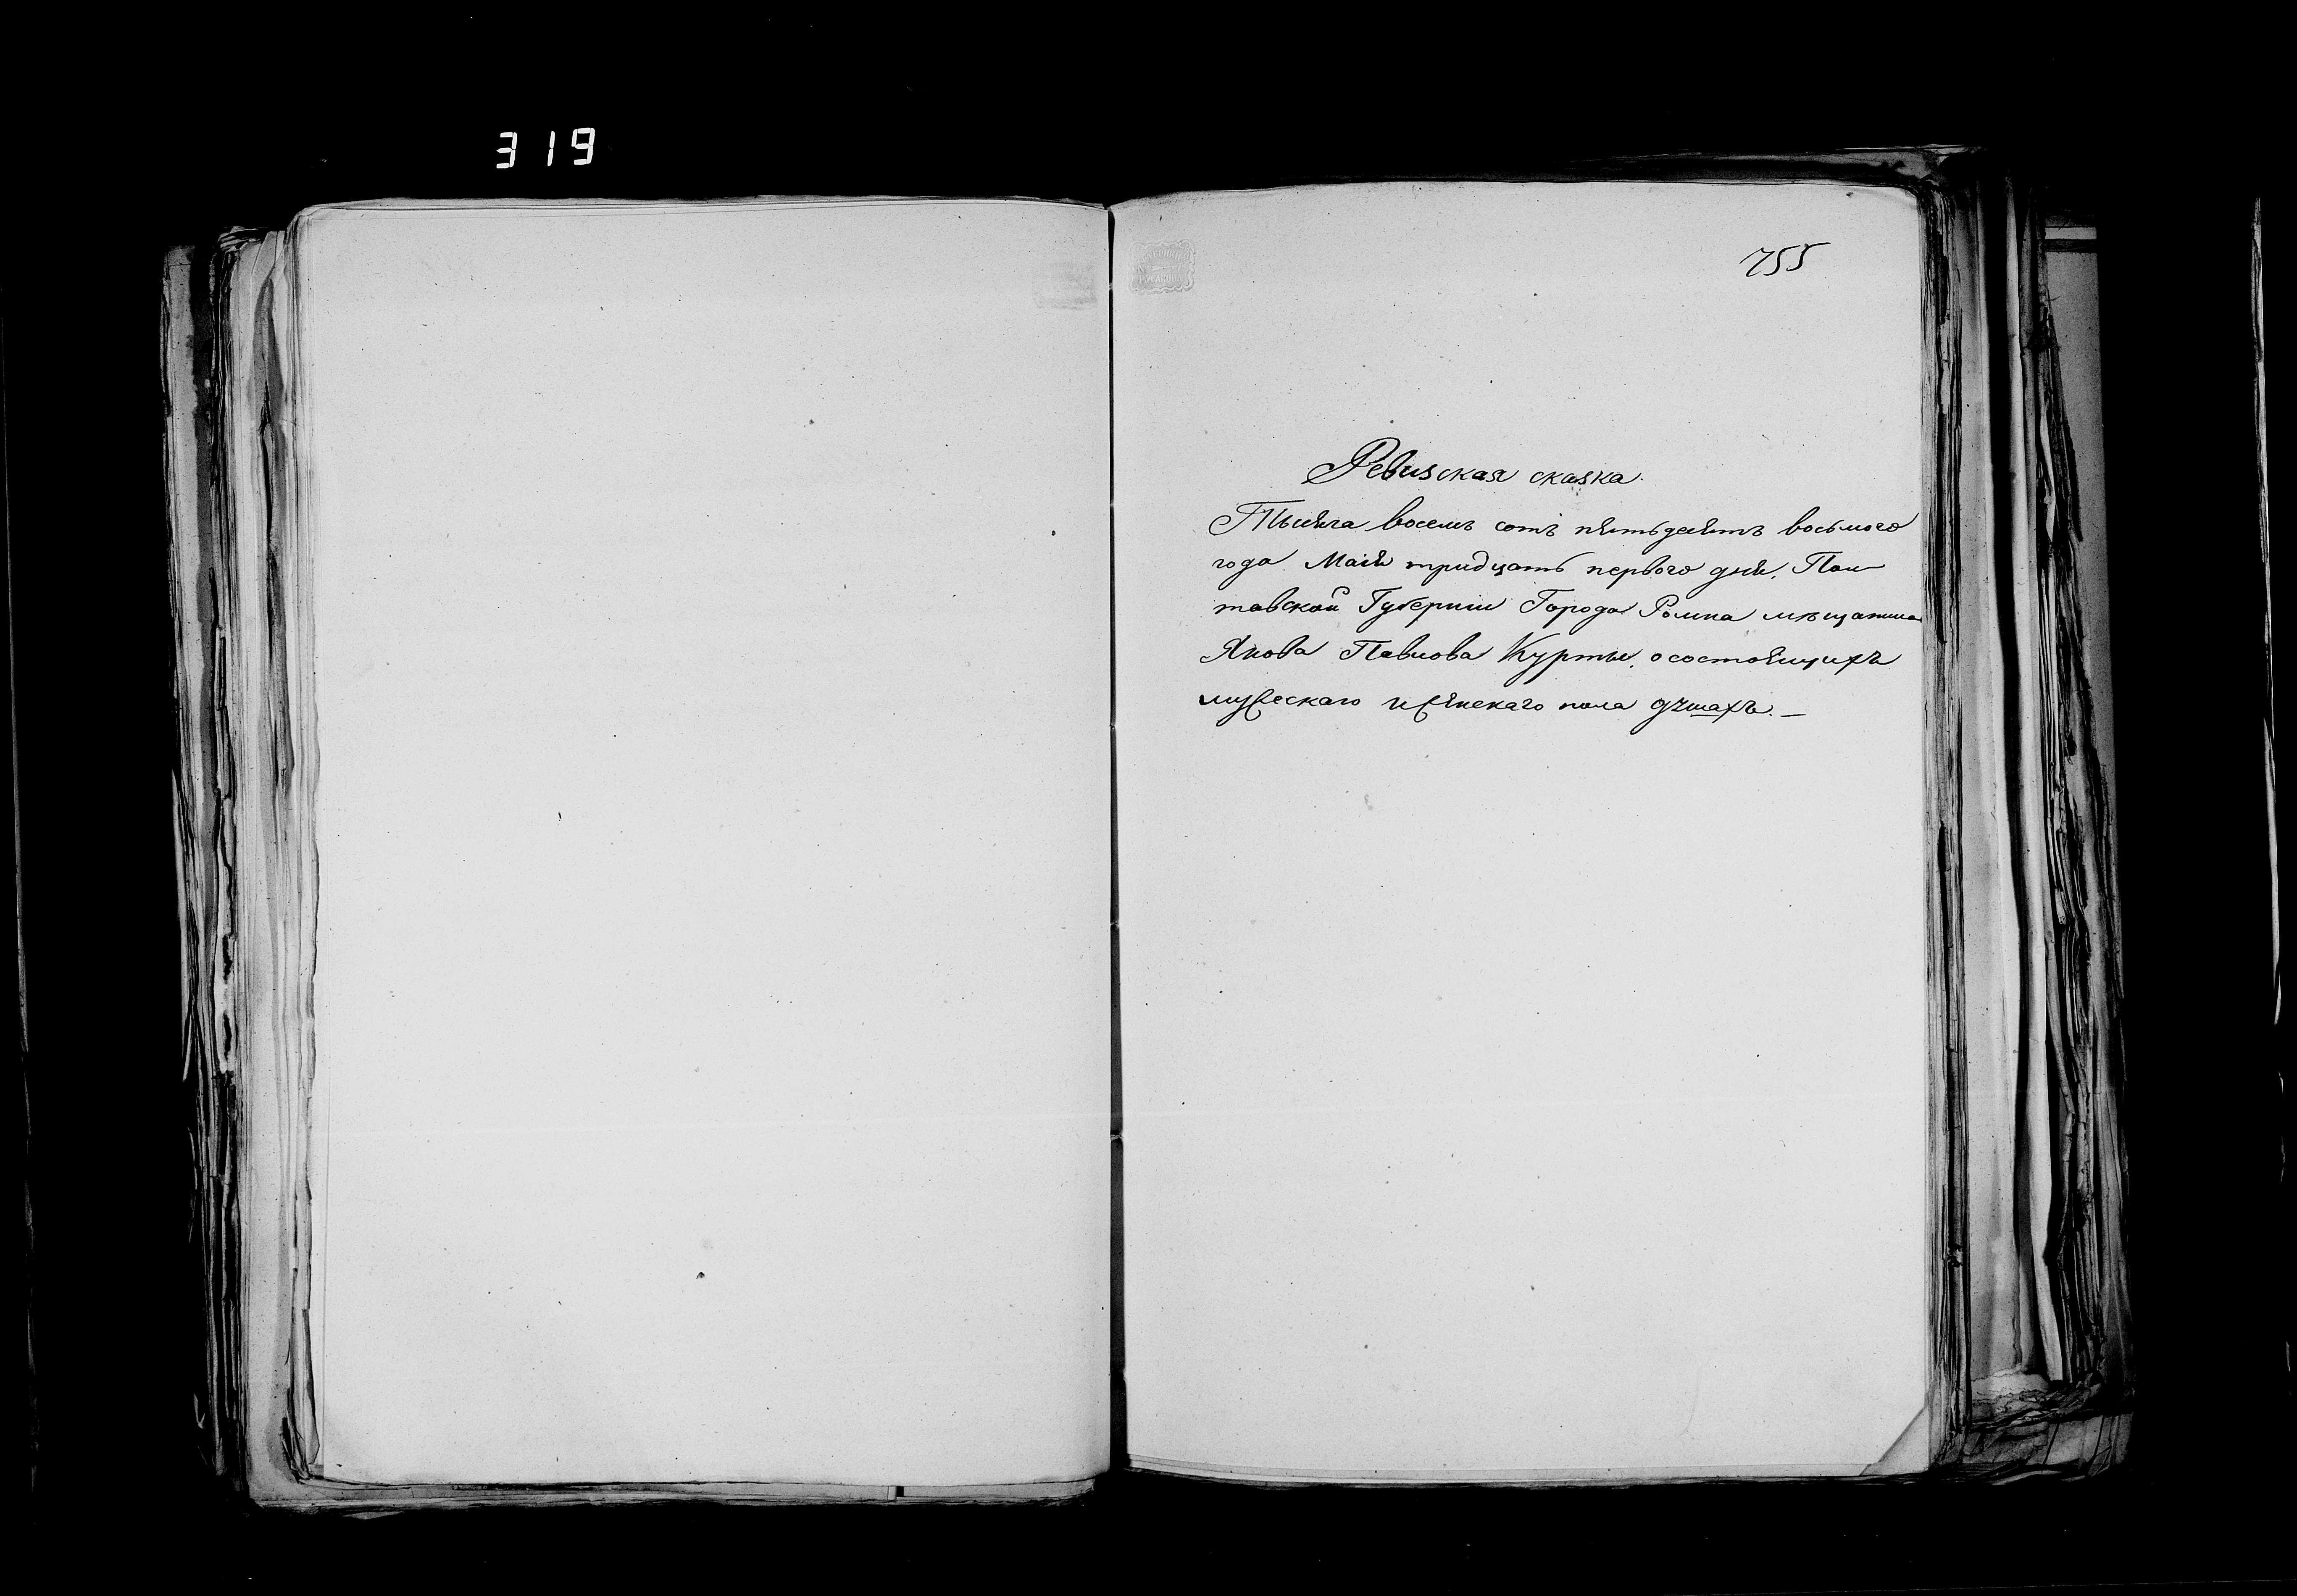 319
755
Ревизская сказка.
Тысяча восемь сотъ пятьдесятъ восьмого
года Маія тридцать первого дня, Пол-
тавской Губерніи Города Ромна мѣщанина
Якова Павлова Курты, о состоящихъ
мужескаго и женскаго пола душахъ. —